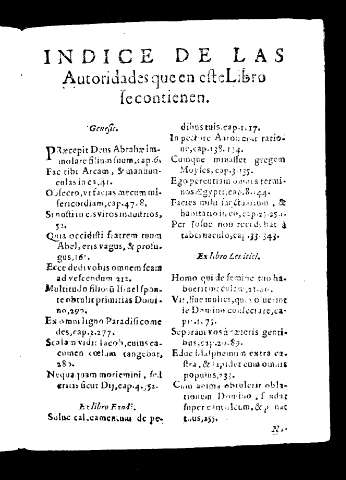 INDICE DE LAS
Autoridades que en este Libro
se contienen.
Genesis.
PRæcepit Deus Abrahæ im-
molare filium suum, cap.6.
Fac tibi Arcam, & mansiun-
culas in ea, 41.
Obsecro, ut facias mecum mi-
sericordiam, cap.47.8.
Si nosti in eis viros industrios,
52.
Quia occidisti fratrem tuum
Abel, eris vagus, & profu-
gus, 161.
Ecce dedi vobis omnem
ad vescendum 212.
Multitudo filiorū Israel spon-
te obtulit primitias Domi-
no, 290.
Ex omni ligno Paradisi come
des, cap.2.277.
Scalam vidit Iacob, cuius ca-
cumen cœlum tangebat,
280.
Nequaquam moriemini, sed
eritis sicut Dij, cap.4.52.
Ex libro Exodi.
Solue calceamentum de pe-
dibus tuis, cap.1.17.
In pectore Aaron erat ratio-
ne, cap.138.134.
Cumque minasset gregem
Moyses, cap.3.135.
Ego percutiam omnes termi-
nos Ægypti, cap.8.144.
Facies mihi sanctuarium, &
habitabo in eo, cap.25.
Per func non recedebat à
tabernaculo, cap.33.343.
Ex libro Levitici.
Homo qui de semine tuo ha-
buerit maculam,
Vir, sive mulier, qui
se Domino consecrare, ca-
pit.1.75.
Separavi vos à cæteris genti-
bus, cap.20.89.
Educ blasphemum extra ca-
stra, & lapidet eum omnis
populus, 135.
Cum anima obtulerit obla-
tionem Domino, fundat
super eam oleum, & ponat
thus, 255.